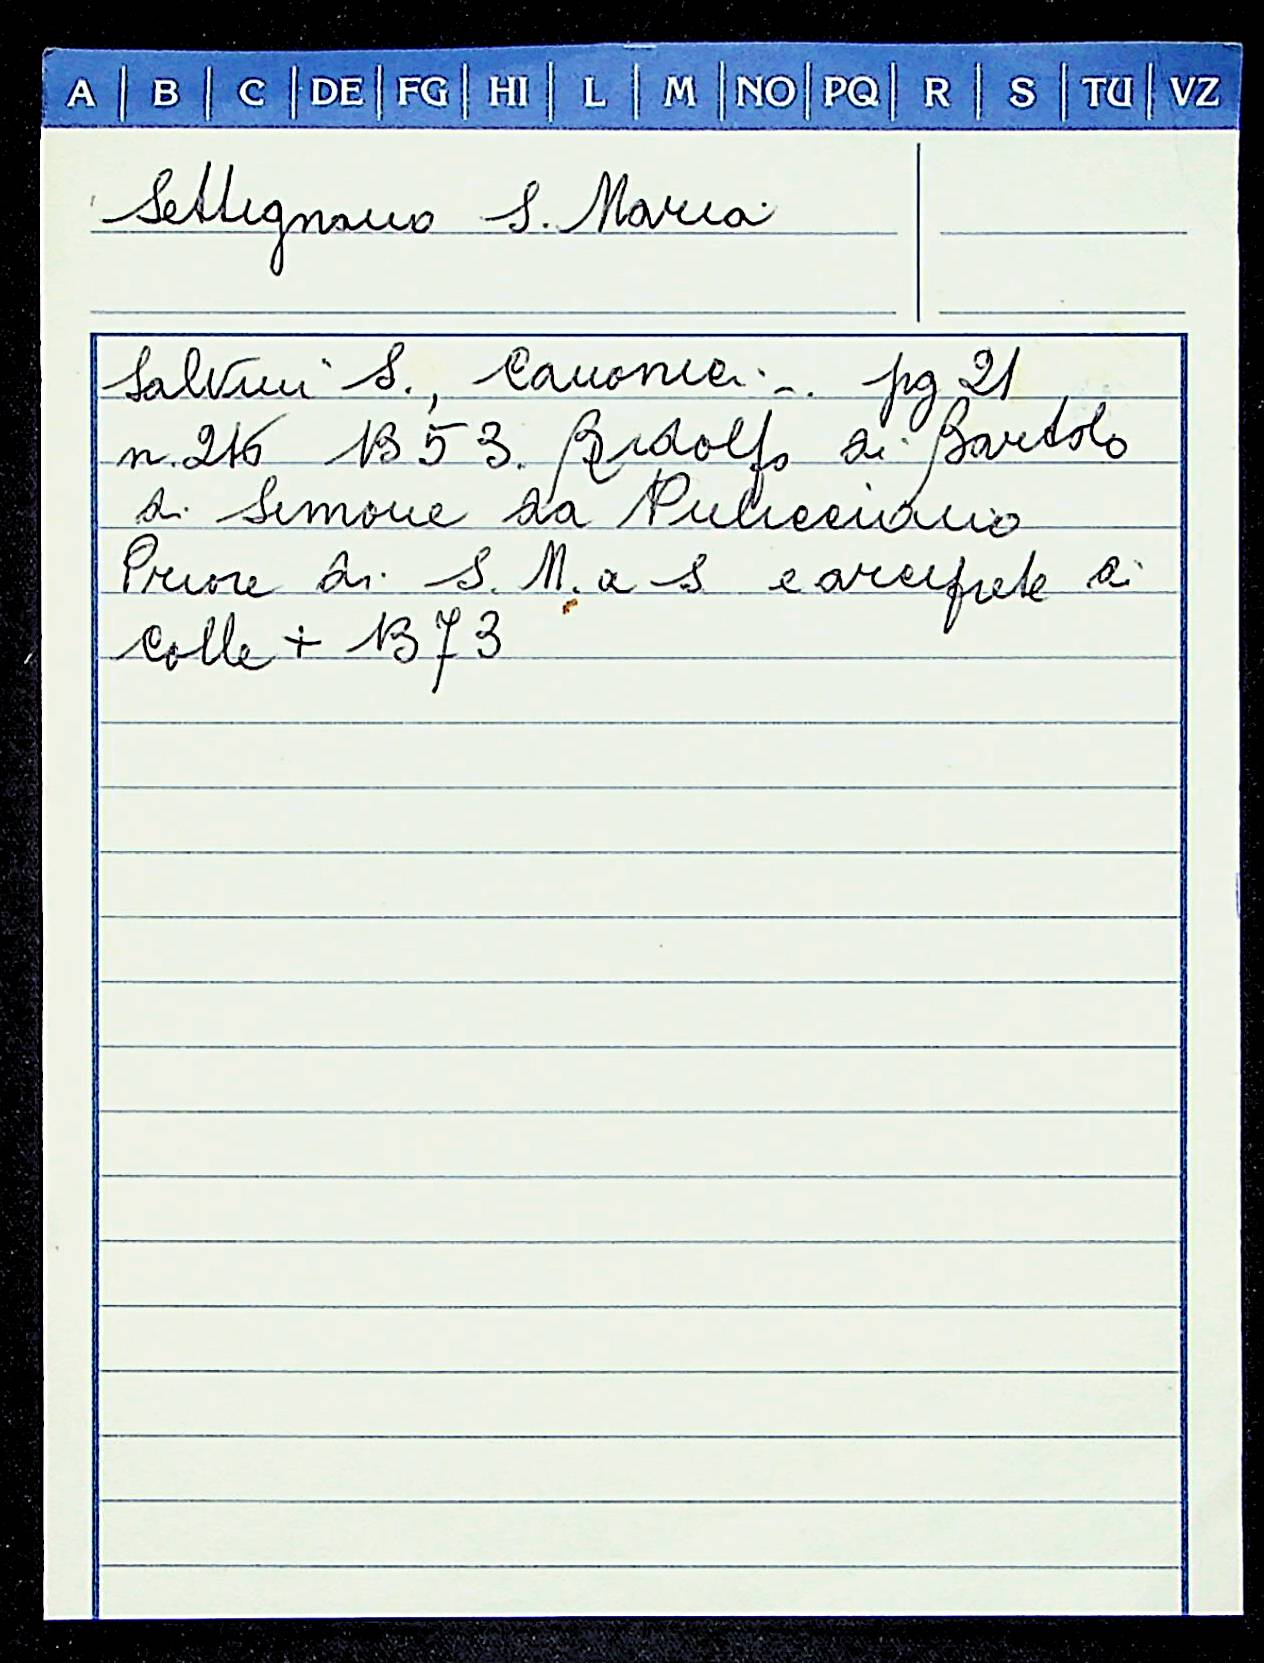 A B C DE FG HI L M NO PQ R S TU VZ
Settignano S. Maria
Salvini S., Canonici... pg 21
n. 216 1353. Ridolfo di Bartolo
di Simone da Pulicciano
Priore di S. M. a S e arciprete di
Colle + 1373